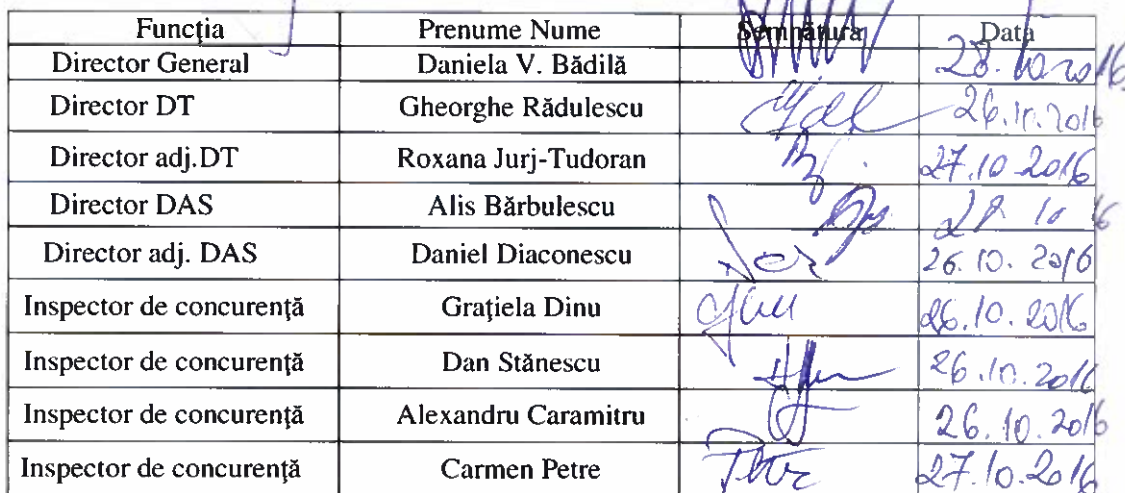 Funcția Prenume Nume Semnătura Data
Director General Daniela V. Bădilă 28.10.2016
Director DT Gheorghe Rădulescu 26.10.2016
Director adj.DT Roxana Jurj-Tudoran 27.10.2016
Director DAS Alis Bărbulescu 10 16
Director adj. DAS Daniel Diaconescu 26.10.2016
Inspector de concurență Grațiela Dinu 26.10.2016
Inspector de concurență Dan Stănescu 26.10.2016
Inspector de concurență Alexandru Caramitru 26.10.2016
Inspector de concurență Carmen Petre 27.10.2016